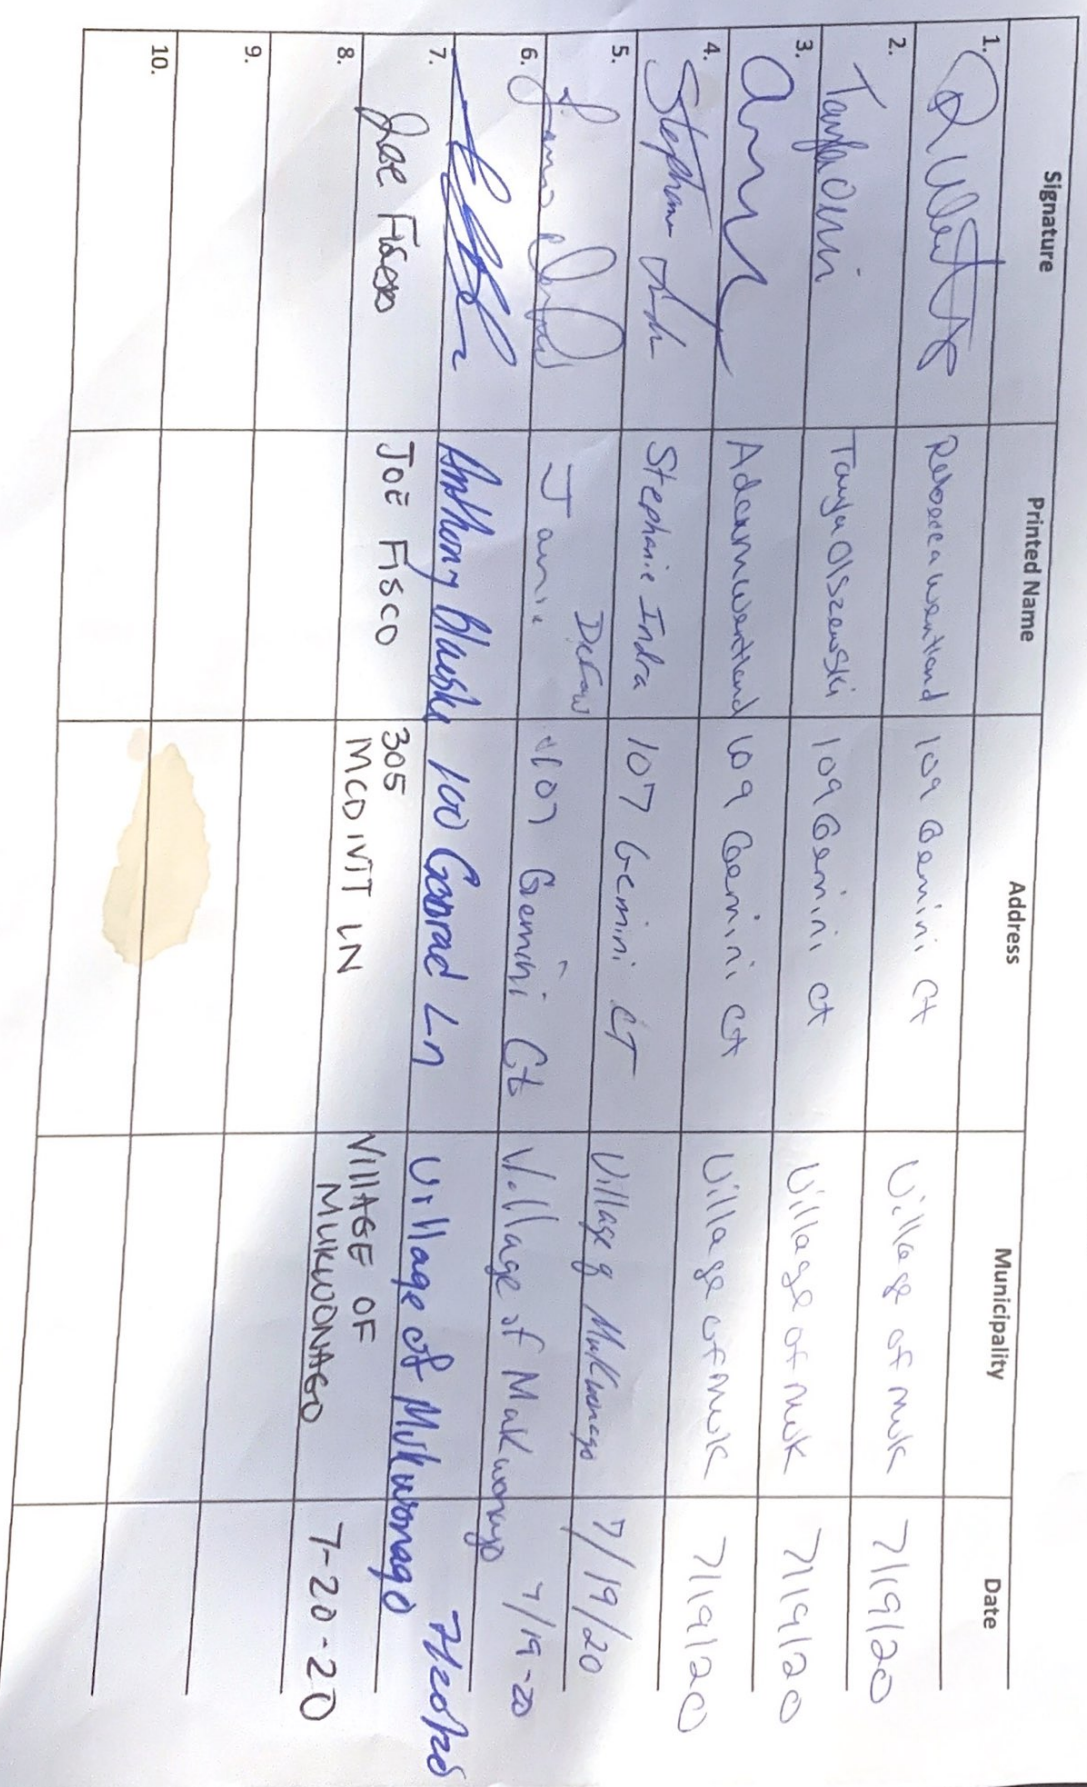 Signature Printed Name Address Municipality Date
1. Rebecca Wentland 109 Gemini Ct Village of Muk 7/19/20
2. Tanya Olszewski 109 Gemini Ct Village of Muk 7/19/20
3. Adam Wentland 109 Gemini Ct Village of Muk 7/19/20
4. Stephanie Indra 107 Gemini CT Village of Mukwonago 7/19/20
5. Jamie 107 Gemini Ct Village of Mukwonago 7/19-20
6. Anthony 100 Conrad Ln Village of Mukwonago
7. Joe Fisco JOE FISCO 305 MCDIVITT LN VILLAGE OF MUKWONAGO 7-20-20
8.
9.
10.